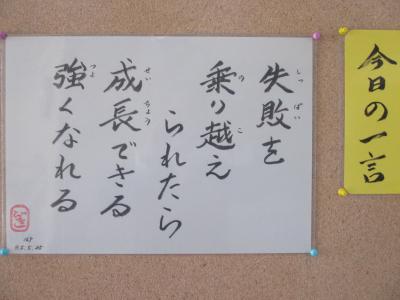 今日の一言
失敗を
しっぱい
乗り越え
のこ
られたら
成長できる
せいちょう
強くなれる
つよ